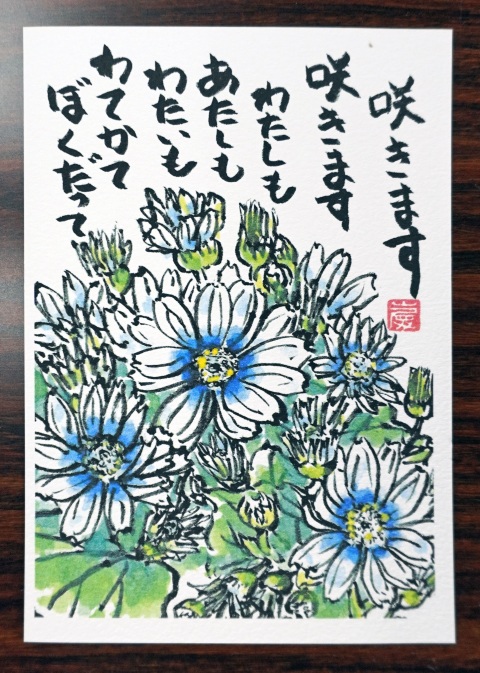 咲きます
咲きます
わたしも
あたしも
わたいも
わてかて
ぼくだって